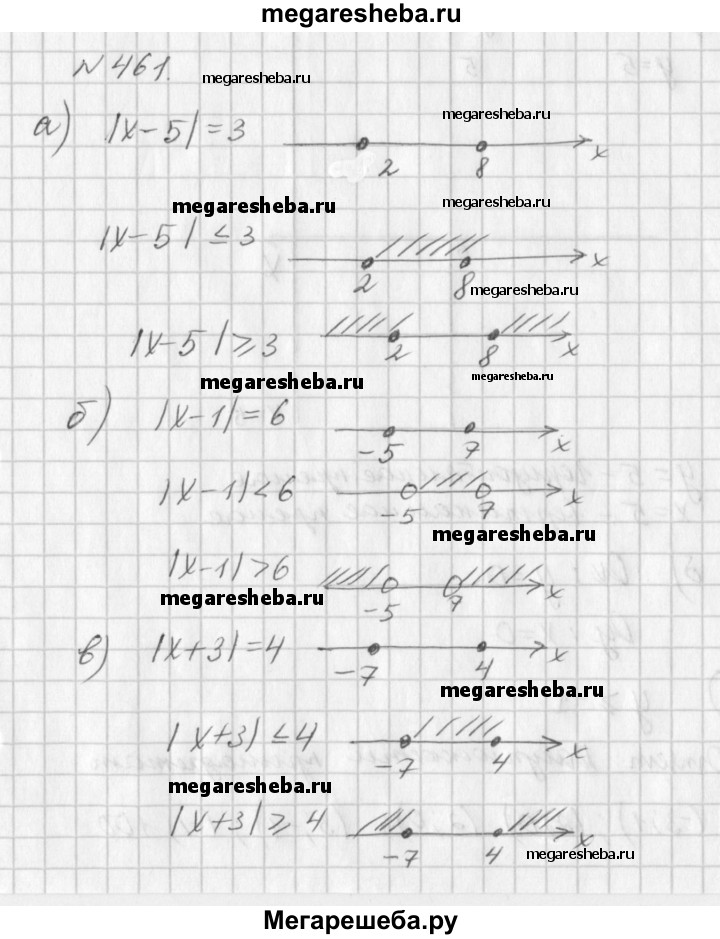 megaresheba.ru
№461.
megaresheba.ru
а) |x-5|=3
megaresheba.ru
2 8 x
megaresheba.ru
megaresheba.ru
|x-5|≤3
2 8 x
megaresheba.ru
|x-5|⩾3
2 8 x
megaresheba.ru
megaresheba.ru
б) |x-1|=6
-5 7 x
|x-1|<6
-5 7 x
megaresheba.ru
|x-1|>6
-5 7 x
megaresheba.ru
в) |x+3|=4
-7 4 x
megaresheba.ru
|x+3|≤4
-7 4 x
megaresheba.ru
|x+3|⩾4
-7 4 x
megaresheba.ru
Мегарешеба.ру